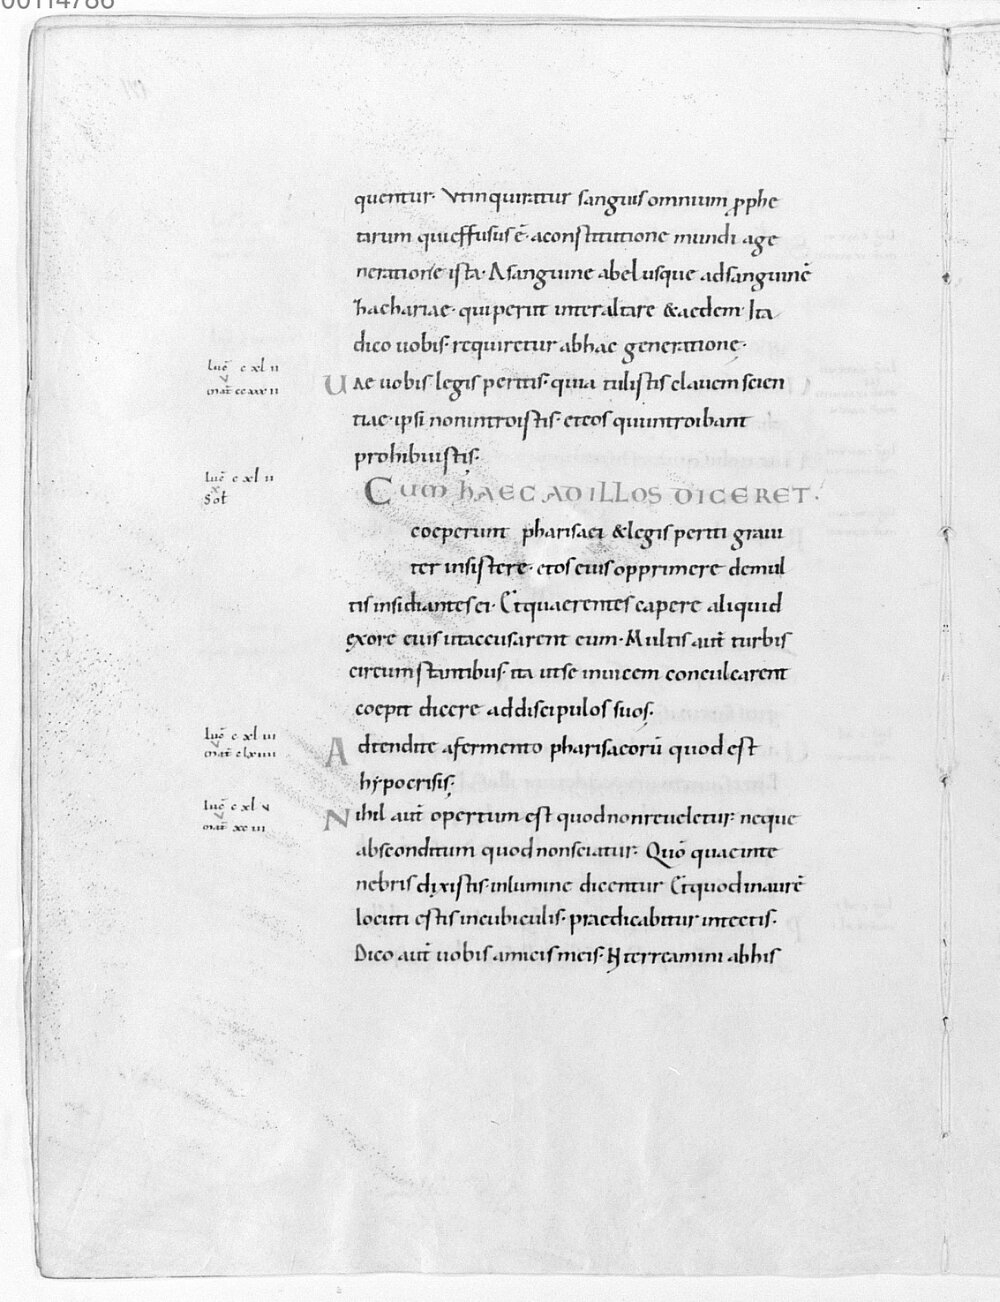 00114786
quentur· Vtinquiratur sanguis omnium ꝓphe
tarum qui effusus ē· aconstitutione mundi age
neratione ista· Asanguine abel usque adsanguinē
hachariae· qui periit interaltare &aedem· Ita
dico uobis· requiretur abhac generatione·
luc̄ c xl ii
Uae uobis legis peritis· quia tulistis clauem scien
mat̄ ccxxx ii
tiae· ipsi nonintroistis· eteos quiintroibant
prohibuistis·
luc̄ c xl ii
Cum haec ad illos diceret·
sol̄
coeperunt pharisaei &legis periti graui
ter insistere· etos eius opprimere demul
tis insidiantes ei· Etquaerentes capere aliquid
exore eius utaccusarent eum· Multis aut̄ turbis
circumstantibus· ita utse inuicem conculcarent
coepit dicere addiscipulos suos·
luc̄ c xl iii
Adtendite afermento pharisaeorū quod est
mat̄ clxiiii
hypocrisis·
luc̄ c xl v
Nihil aut̄ opertum est quod nonreueletur· neque
mat̄ xc iii
absconditum quod nonsciatur· Quō quae inte
nebris dixistis· inlumine dicentur Etquod inaurē
locuti estis incubiculis· praedicabitur intectis·
Dico aut̄ uobis amicis meis· N̄ terreamini abhis